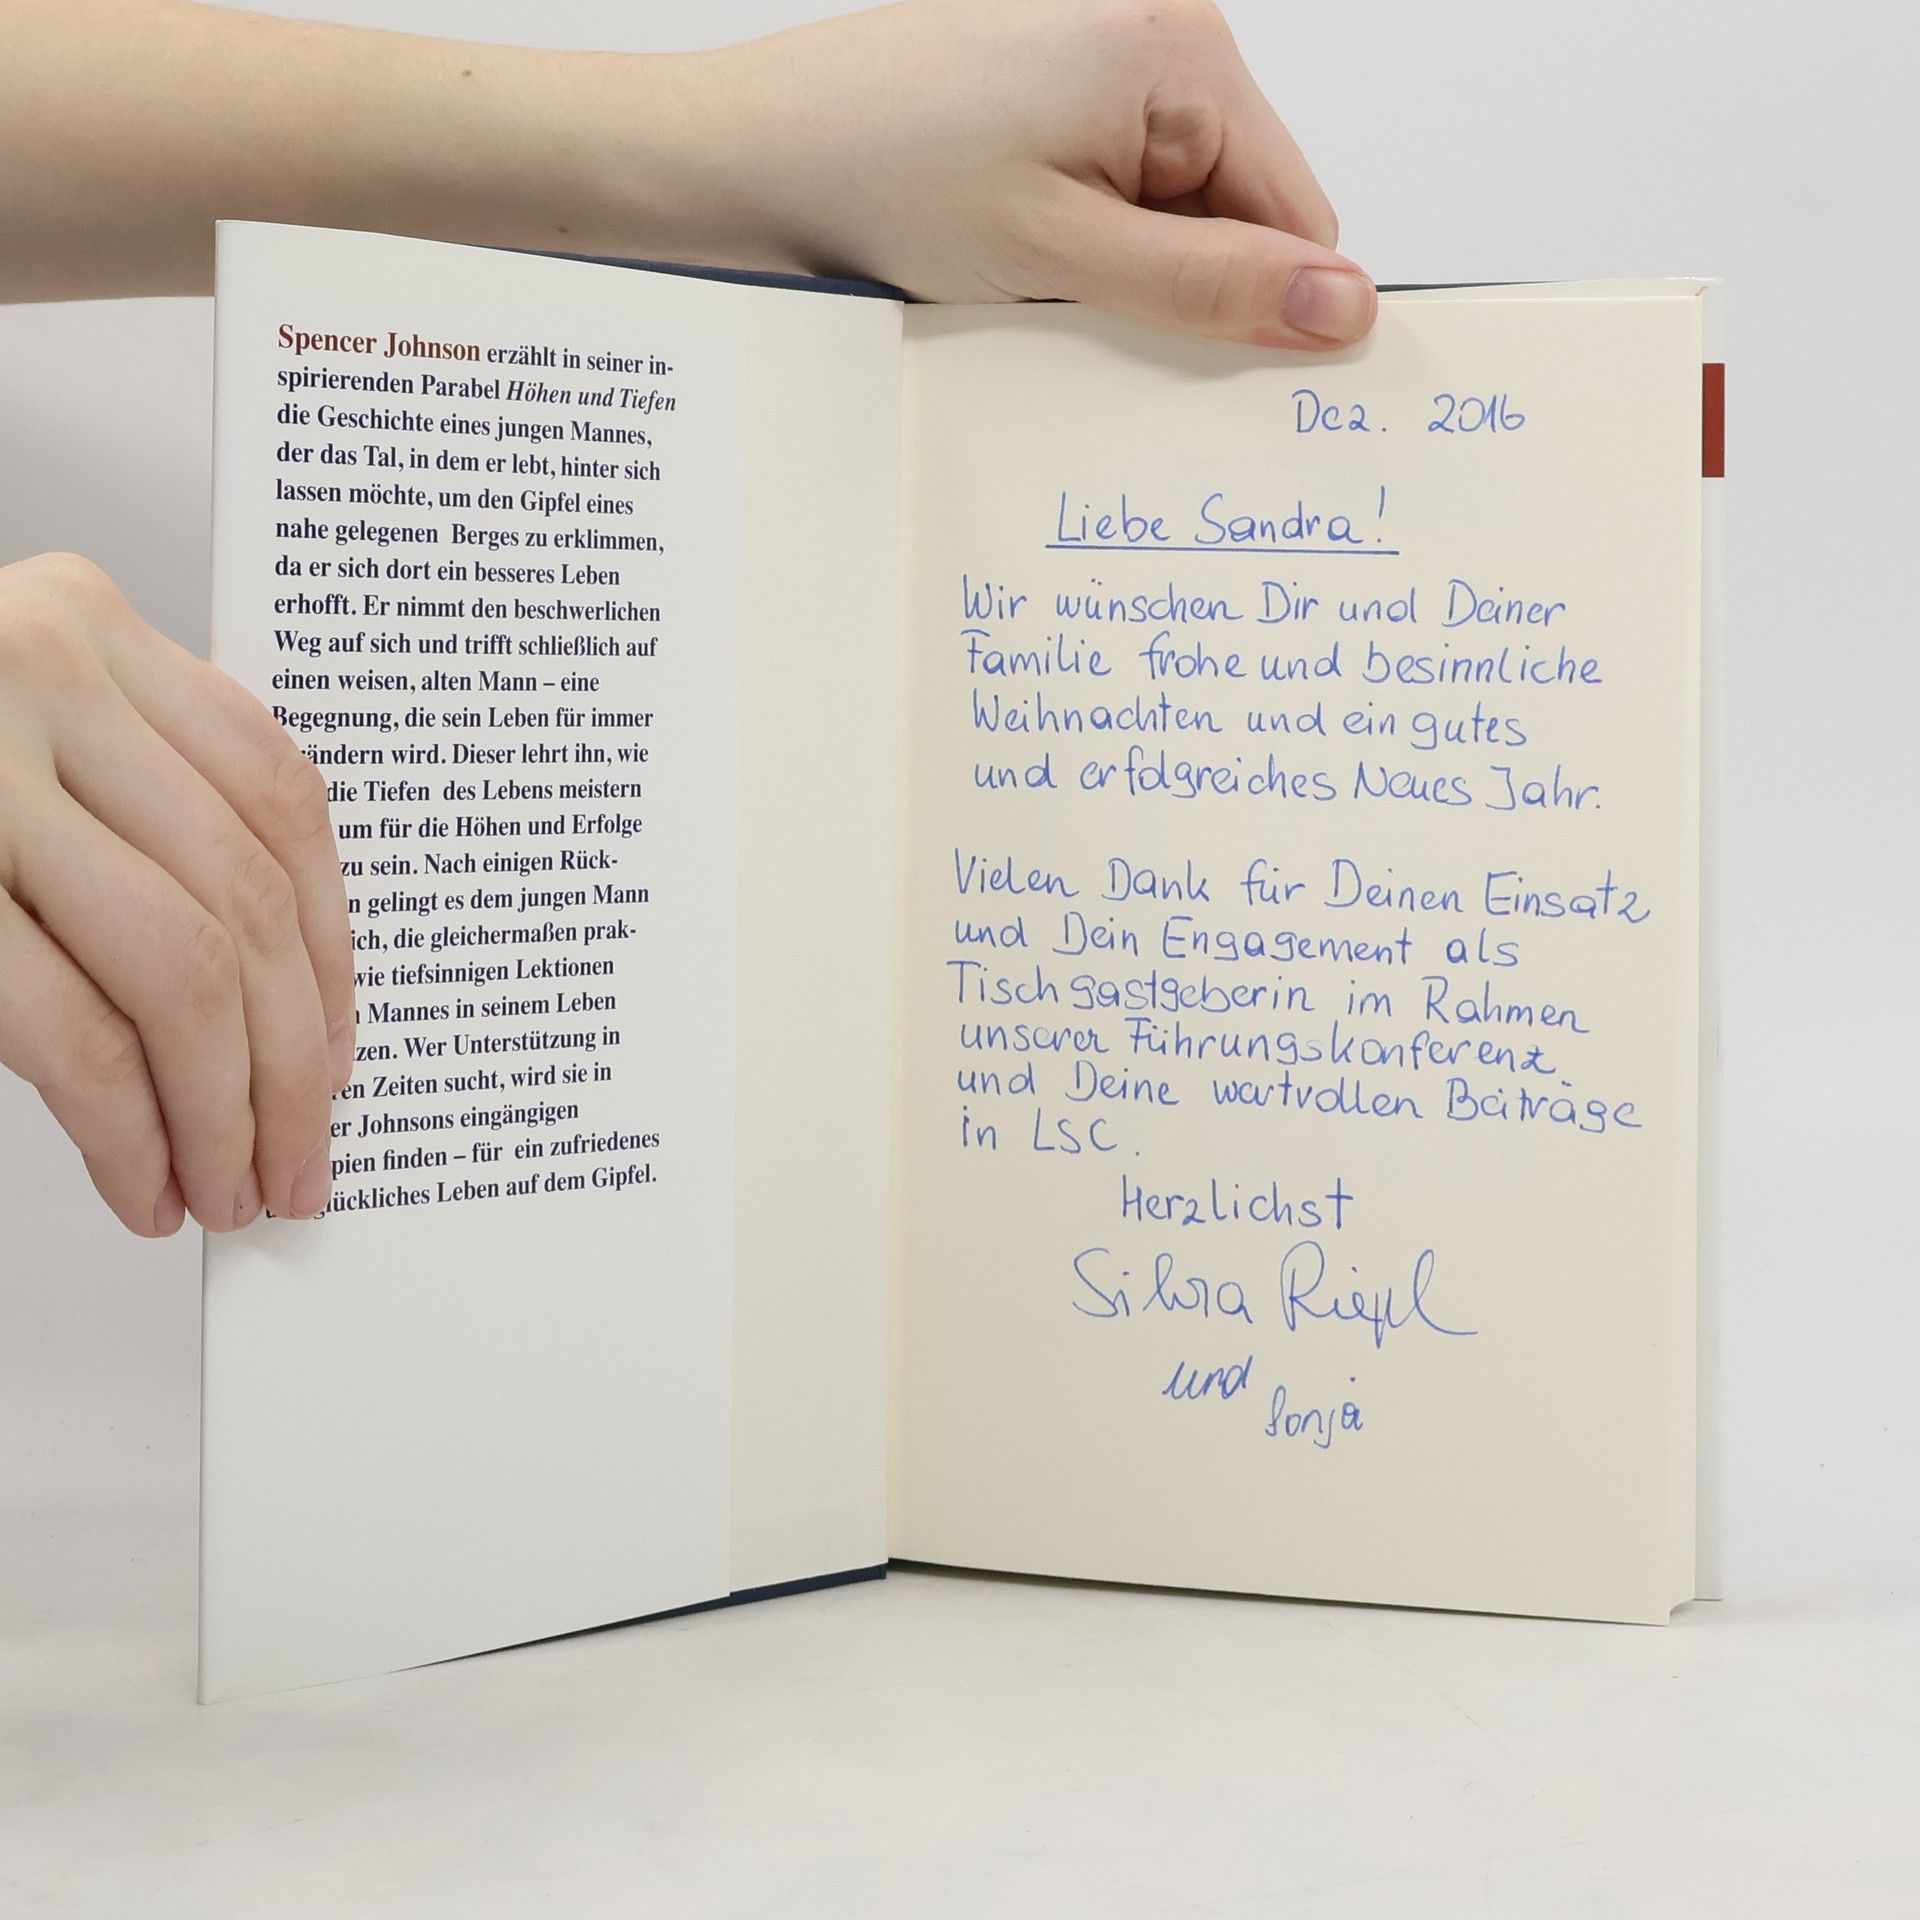 Spencer Johnson erzählt in seiner in-
spirierenden Parabel Höhen und Tiefen
die Geschichte eines jungen Mannes,
der das Tal, in dem er lebt, hinter sich
lassen möchte, um den Gipfel eines
nahe gelegenen Berges zu erklimmen,
da er sich dort ein besseres Leben
erhofft. Er nimmt den beschwerlichen
Weg auf sich und trifft schließlich auf
einen weisen, alten Mann – eine
Begegnung, die sein Leben für immer
ändern wird. Dieser lehrt ihn, wie
die Tiefen des Lebens meistern
um für die Höhen und Erfolge
zu sein. Nach einigen Rück-
n gelingt es dem jungen Mann
ich, die gleichermaßen prak-
wie tiefsinnigen Lektionen
Mannes in seinem Leben
zen. Wer Unterstützung in
en Zeiten sucht, wird sie in
er Johnsons eingängigen
pien finden – für ein zufriedenes
lückliches Leben auf dem Gipfel.
Dez. 2016
Liebe Sandra!
Wir wünschen Dir und Deiner
Familie frohe und besinnliche
Weihnachten und ein gutes
und erfolgreiches Neues Jahr.
Vielen Dank für Deinen Einsatz
und Dein Engagement als
Tischgastgeberin im Rahmen
unserer Führungskonferenz
und Deine wertvollen Beiträge
in LSC.
Herzlichst
Silvia Riepl
und Sonja